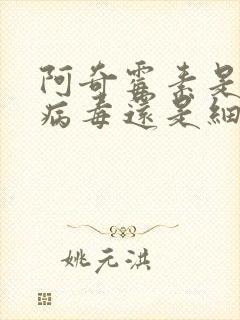 阿奇霉素是
病毒還是細
姚元洪